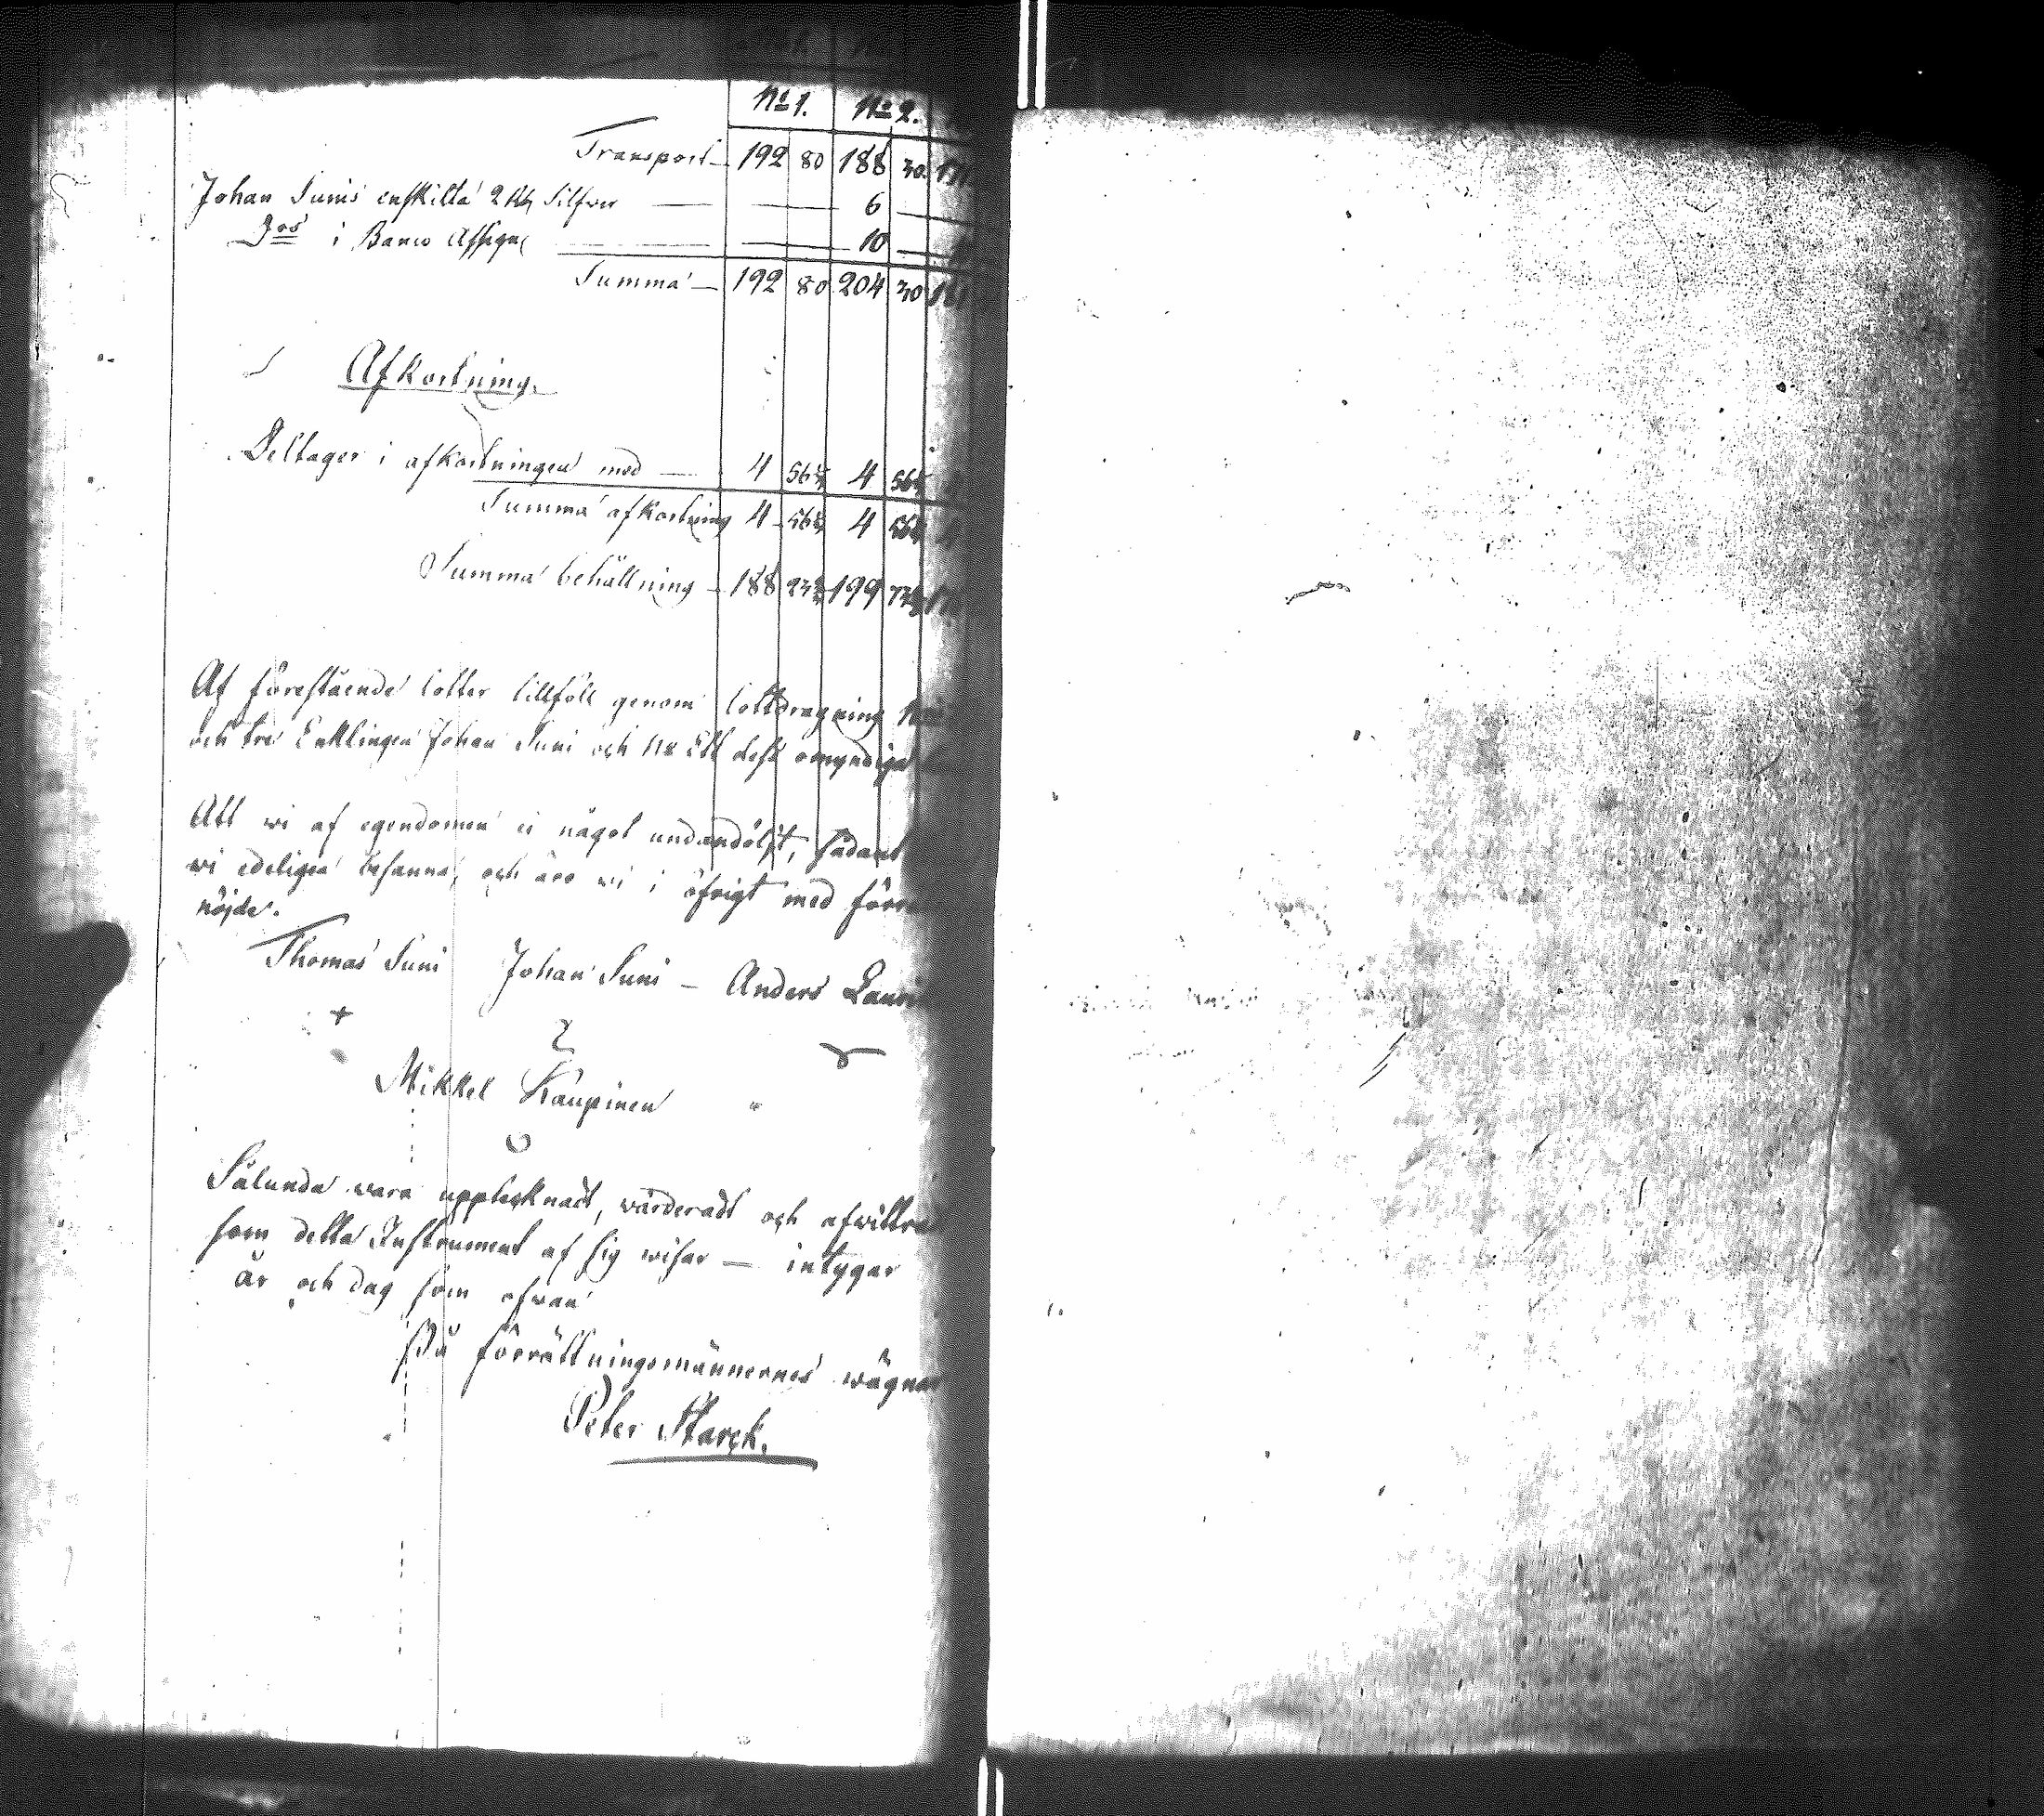 No 1. No 2.
Transport 192 80 188 30
Johan Sunis enskilta 2 Rb Silfwer — 6 —
Do i Banco Assign — 10 —
Summa — 192 80 204 30 181
Afkortning.
Deltager i afkortningen med — 4 56 4 56
Summa afkortning 4 56 4 56 4
Summa behållning — 188 23 199 73
Af förestående lotter tillföll genom lottdragning
och tre Enklingen Johan Suni och No Ett dess omyndiga
Att wi af egendomen ei något undandölgt, sådant
wi edeligen besanna, och äro wi i öfrigt med
nöjde.
Thomas Suni Johan Suni — Anders
Mikkel Kaupinen
Sålunda wara upptecknadt, wärderadt och
som detta Instrument af sig wisar — intygar
år och dag som ofwan
På förrättningsmännernes wägnar
Peter Starck.